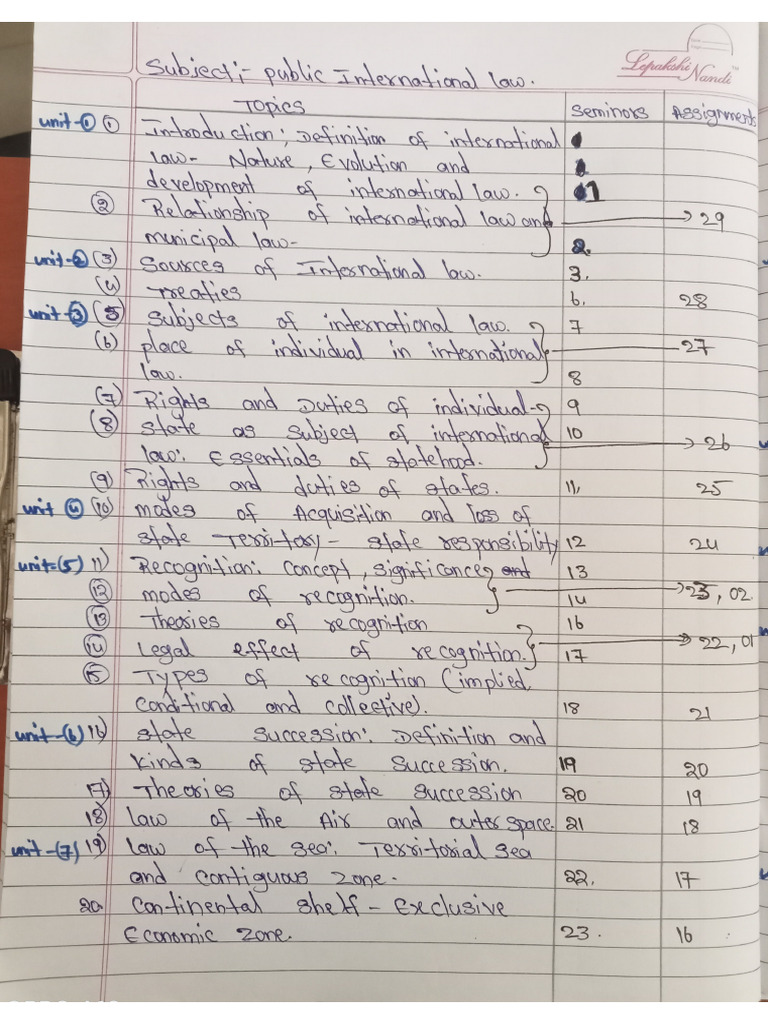 Lepakshi Nandi™
Subject:- public International law.
Topics Seminors Assignments
unit-① ① Introduction; Definition of international
law- Nature, Evolution and
development of international law. 1
② Relationship of international law and → 29
municipal law- 2.
unit-② (3) Sources of International law. 3.
(4) Treaties 6. 28
unit-③ (5) Subjects of international law. 7
(6) place of individual in international 27
law. 8
(7) Rights and Duties of individual- 9
(8) State as subject of international 10 → 26
law: Essentials of statehood.
(9) Rights and duties of states. 11, 25
unit ④ (10) modes of Acquisition and loss of
state Territory- state responsibility 12 24
unit=(5) 11) Recognition: concept, significance and 13
⑫ modes of recognition. 14 → 23, 02.
⑬ Theories of recognition 16
⑭ Legal effect of recognition. 17 → 22, 01
⑮ Types of recognition (implied,
conditional and collective). 18 21
unit-(6) 16) state succession: Definition and
kinds of state succession. 19 20
17) Theories of state succession 20 19
18) law of the Air and outer space. 21 18
unit-(7) 19) law of the sea: Territorial sea
and contiguous zone. 22. 17
20. Continental shelf - Exclusive
Economic zone. 23. 16